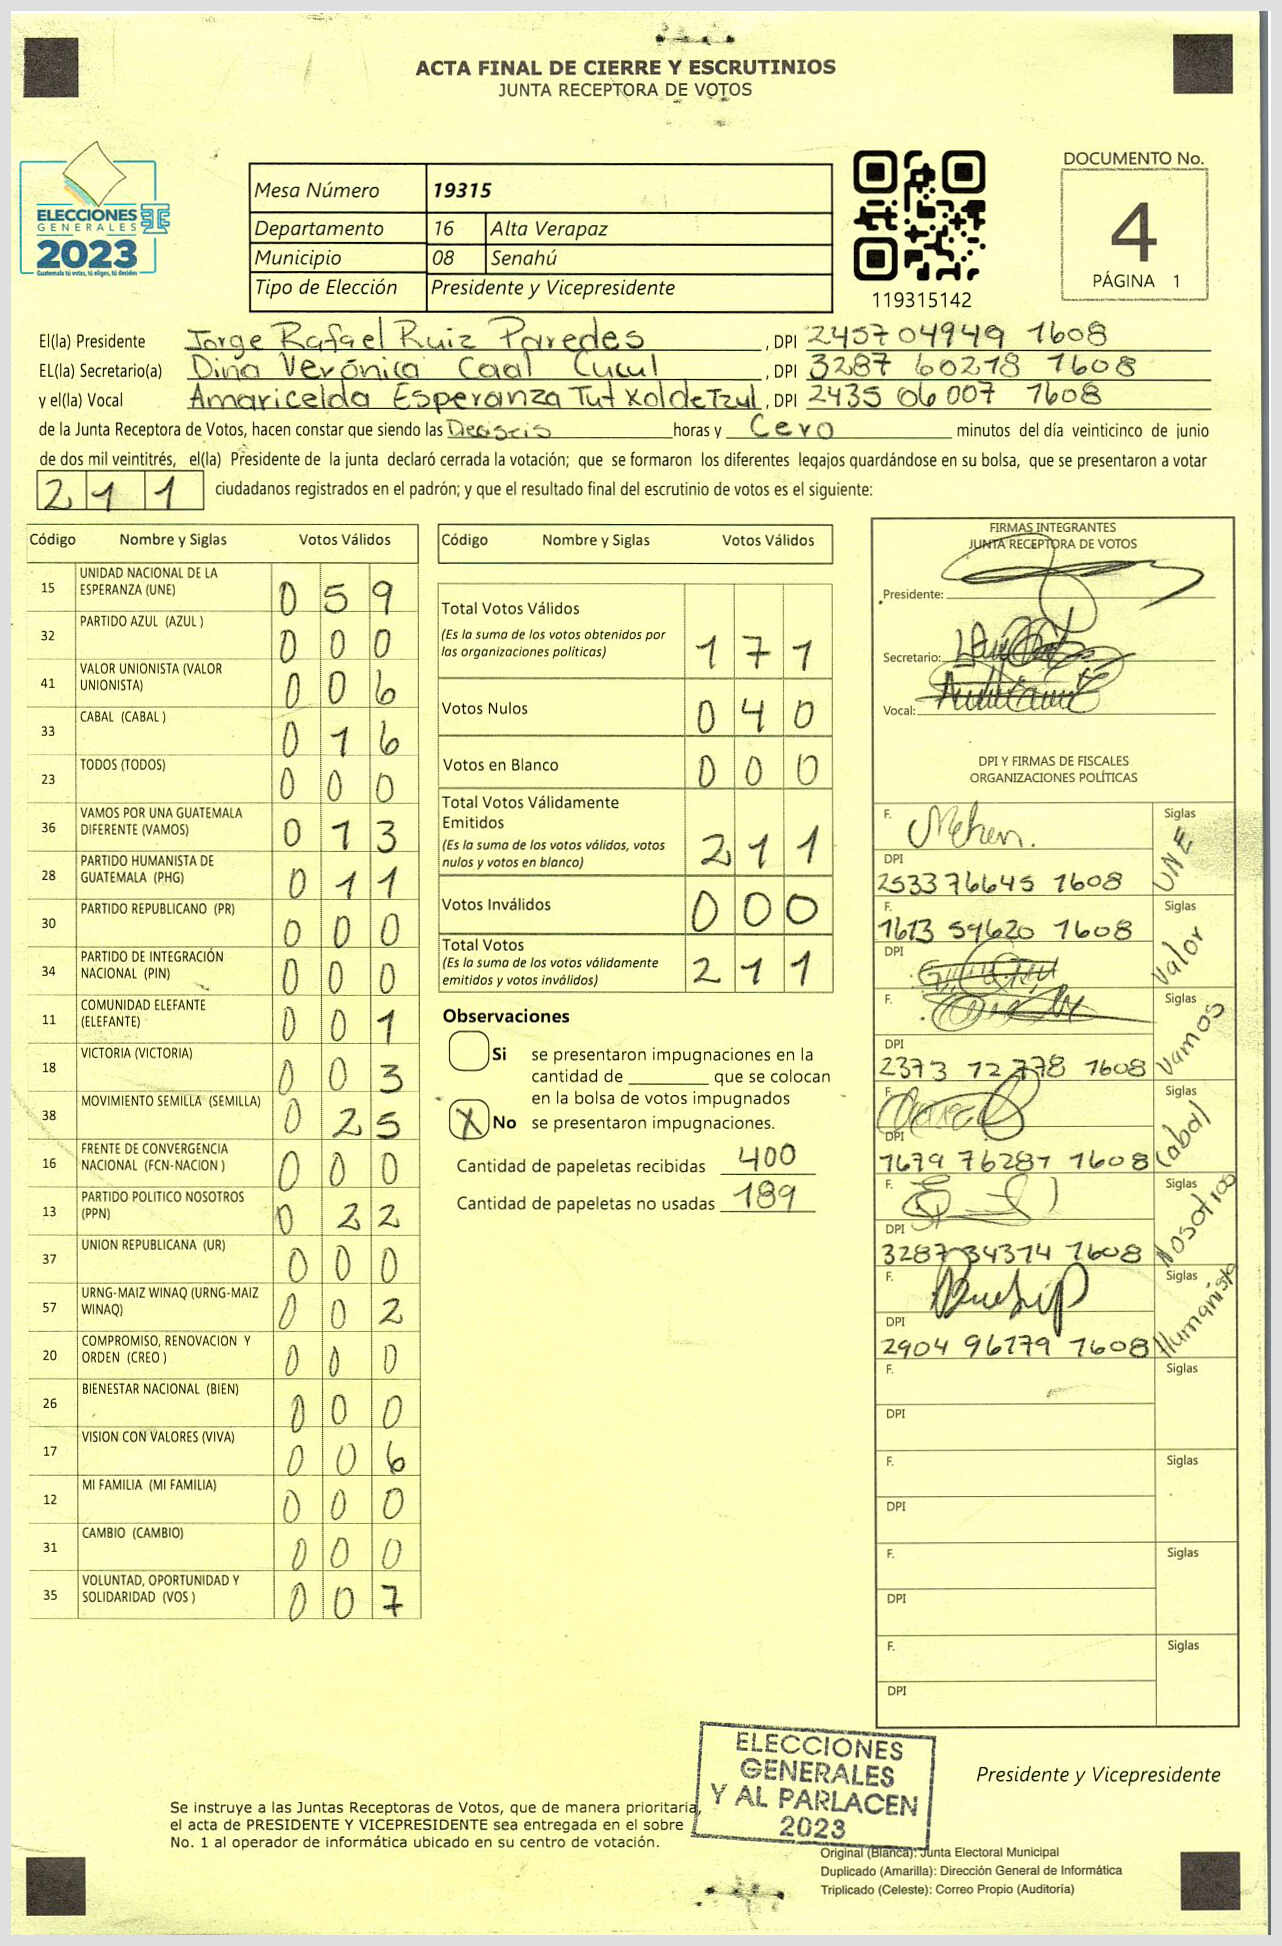 ACTA FINAL DE CIERRE Y ESCRUTINIOS
JUNTA RECEPTORA DE VOTOS
ELECCIONES
GENERALES
2023
Guatemala tú votas, tú eliges, tú decides
Mesa Número 19315
Departamento 16 Alta Verapaz
Municipio 08 Senahú
Tipo de Elección Presidente y Vicepresidente
119315142
DOCUMENTO No.
4
PÁGINA 1
El(la) Presidente Jorge Rafael Ruiz Paredes, DPI 2457 04949 1608
EL(la) Secretario(a) Dina Verónica Caal Cucul, DPI 3287 60218 1608
y el(la) Vocal Amaricelda Esperanza Tut Xol de Tzul, DPI 2435 06007 1608
de la Junta Receptora de Votos, hacen constar que siendo las Deciseis horas y Cero minutos del día veinticinco de junio
de dos mil veintitrés, el(la) Presidente de la junta declaró cerrada la votación; que se formaron los diferentes legajos guardándose en su bolsa, que se presentaron a votar
211 ciudadanos registrados en el padrón; y que el resultado final del escrutinio de votos es el siguiente:
Código Nombre y Siglas Votos Válidos
15 UNIDAD NACIONAL DE LA ESPERANZA (UNE) 0 5 9
32 PARTIDO AZUL (AZUL ) 0 0 0
41 VALOR UNIONISTA (VALOR UNIONISTA) 0 0 6
33 CABAL (CABAL ) 0 1 6
23 TODOS (TODOS) 0 0 0
36 VAMOS POR UNA GUATEMALA DIFERENTE (VAMOS) 0 1 3
28 PARTIDO HUMANISTA DE GUATEMALA (PHG) 0 1 1
30 PARTIDO REPUBLICANO (PR) 0 0 0
34 PARTIDO DE INTEGRACIÓN NACIONAL (PIN) 0 0 0
11 COMUNIDAD ELEFANTE (ELEFANTE) 0 0 1
18 VICTORIA (VICTORIA) 0 0 3
38 MOVIMIENTO SEMILLA (SEMILLA) 0 2 5
16 FRENTE DE CONVERGENCIA NACIONAL (FCN-NACION ) 0 0 0
13 PARTIDO POLITICO NOSOTROS (PPN) 0 2 2
37 UNION REPUBLICANA (UR) 0 0 0
57 URNG-MAIZ WINAQ (URNG-MAIZ WINAQ) 0 0 2
20 COMPROMISO, RENOVACION Y ORDEN (CREO ) 0 0 0
26 BIENESTAR NACIONAL (BIEN) 0 0 0
17 VISION CON VALORES (VIVA) 0 0 6
12 MI FAMILIA (MI FAMILIA) 0 0 0
31 CAMBIO (CAMBIO) 0 0 0
35 VOLUNTAD, OPORTUNIDAD Y SOLIDARIDAD (VOS ) 0 0 7
Código Nombre y Siglas Votos Válidos
Total Votos Válidos 1 7 1
(Es la suma de los votos obtenidos por
las organizaciones políticas)
Votos Nulos 0 4 0
Votos en Blanco 0 0 0
Total Votos Válidamente
Emitidos 2 1 1
(Es la suma de los votos válidos, votos
nulos y votos en blanco)
Votos Inválidos 0 0 0
Total Votos 2 1 1
(Es la suma de los votos válidamente
emitidos y votos inválidos)
Observaciones
Si se presentaron impugnaciones en la
cantidad de ________ que se colocan
en la bolsa de votos impugnados
X No se presentaron impugnaciones.
Cantidad de papeletas recibidas 400
Cantidad de papeletas no usadas 189
FIRMAS INTEGRANTES
JUNTA RECEPTORA DE VOTOS
Presidente:
Secretario:
Vocal:
DPI Y FIRMAS DE FISCALES
ORGANIZACIONES POLÍTICAS
F. Siglas UNE
DPI 2533 76645 1608
F. 1613 59620 1608 Siglas Valor
DPI
F. Siglas Vamos
DPI 2373 12778 1608
Siglas Cabal
DPI 1679 76287 1608
F. Siglas Nosotros
DPI 3287 34314 1608
F. Siglas Humanista
DPI 2904 96179 1608
F. Siglas
DPI
F. Siglas
DPI
F. Siglas
DPI
F. Siglas
DPI
ELECCIONES
GENERALES
Y AL PARLACEN
2023
Presidente y Vicepresidente
Se instruye a las Juntas Receptoras de Votos, que de manera prioritaria,
el acta de PRESIDENTE Y VICEPRESIDENTE sea entregada en el sobre
No. 1 al operador de informática ubicado en su centro de votación.
Original (Blanca): Junta Electoral Municipal
Duplicado (Amarilla): Dirección General de Informática
Triplicado (Celeste): Correo Propio (Auditoría)